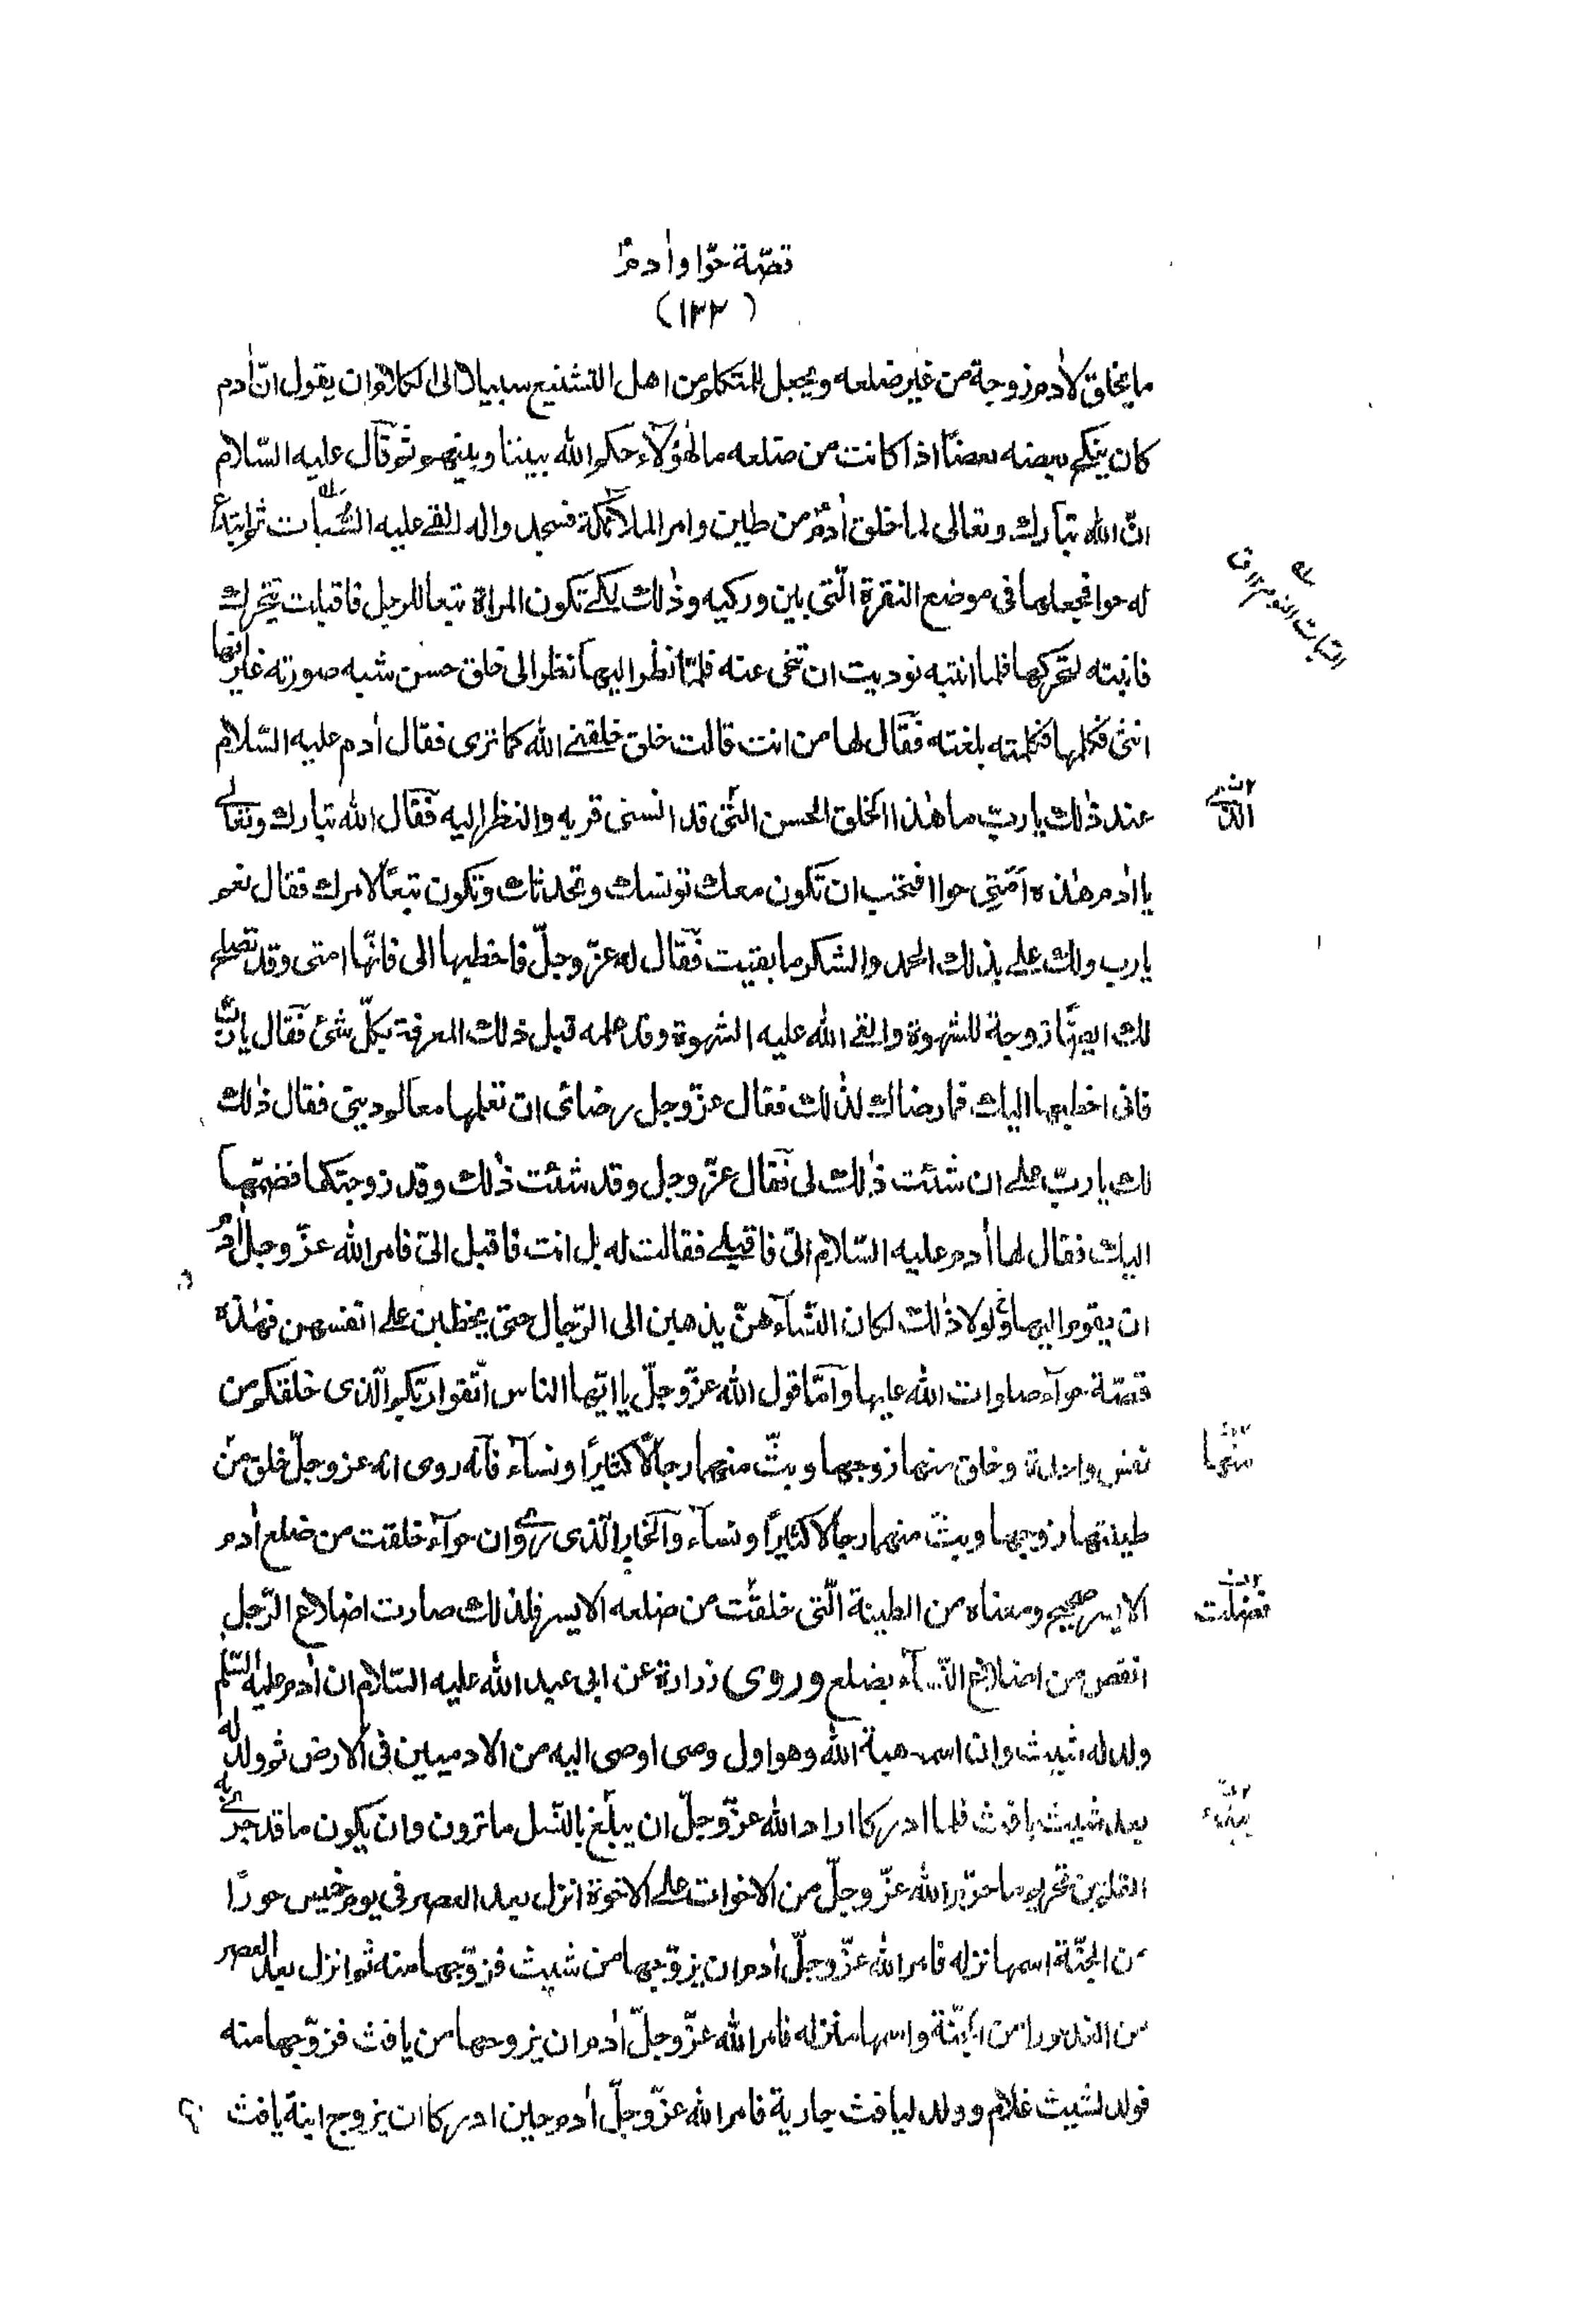 قصّة حوّا واٰدمؑ
(١٣٢)
ما يخلق لاٰدم زوجة من غير ضلعه ويجعل للمتكلم من اهل التشنيع سبيلا الى الكلام ان يقول انّ اٰدم
كان ينكح بعضه بعضاً اذا كانت من ضلعه ما لهٰؤلاء حكم الله بيننا وبينهم ثم قال عليه السّلام
انّ الله تبارك وتعالى لما خلق اٰدمؑ من طين وامر الملائكة فسجدواله القے عليه السُّبات ثم ابتدع
له حوا فجعلها فى موضع النقرة الّتى بين وركيه وذٰلك لكے تكون المراة تبعا للرجل فاقبلت تتحرك
فانتبه لتحركها فلما انتبه نوديت ان تنحى عنه فلمّا نظر اليها نظر الى خلق حسن شبه صورته غير انها
انثى فكلمها فكلمته بلغته فقال لها من انت قالت خلق خلقنے الله كما ترى فقال اٰدم عليه السّلام
عند ذٰلك يا ربّ ما هٰذا الخلق الحسن الّتى قد انسنى قربه والنظر اليه فقال الله تبارك وتعالے
يا اٰدم هٰذه اَمَتِى حوا افتحب ان تكون معك تونسك وتحدثك وتكون تبعًا لامرك فقال نعم
يارب ولك علے بذلك الحمد والشكر ما بقيت فقال له عزّ وجلّ فاخطبها الى فانّها امتى وقد تصلح
لك ايضًا زوجة للشهوة والقے الله عليه الشهوة وقد علمه قبل ذلك المعرفة بكلّ شئ فقال يا ربّ
فانى اخطبها اليك فما رضاك لذٰلك فقال عزّ وجل رضائى ان تعلمها معالم دينى فقال ذٰلك
لك يا ربّ علے ان شئت ذٰلك لى فقال عزّ وجل وقد شئت ذٰلك وقد زوجتكها فضمّها
اليك فقال لها اٰدم عليه السّلام الىّ فاقبلے فقالت له بل انت فاقبل الىّ فامر الله عزّ وجل اٰدمؑ
ان يقوم اليها ولولا ذٰلك لكان النّسآء هنّ يذهبن الى الرّجال حتى يخطبن علے انفسهن فهٰذه
قصّة حوآء صلوات الله عليها وآمّا قول الله عزّ وجلّ يا ايّها الناس اتّقوا ربّكم الّذى خلقكم من
نفس واحدة وخلق منها زوجها وبثّ منهما رجالًا كثيرًا ونسآء فانّه روى انه عز وجلّ خلق من
طينتها زوجها وبث منهما رجالا كثيرًا ونسآء والخبر الّذى روے ان حوآء خلقت من ضلع اٰدم
الايسر صحيح ومعناه من الطينة الّتى خلقت من ضلعه الايسر فلذلك صارت اضلاع الرّجل
انقص من اضلاع النّسآء بضلع وروى زرارة عن ابى عبد الله عليه السّلام ان اٰدم عليه السّلم
ولد له شيث وان اسمه هبة الله وهو اول وصى اوصى اليه من الادميين فى الارض ثم ولد له
بعد شيث يافث فلما ادركا اراد الله عزّ وجلّ ان يبلغ بالنّسل ما ترون وان يكون ما قد جرے به
القلم من تحريم ما حرّم الله عزّ وجلّ من الاخوات علے الاخوة انزل بعد العصر فى يوم خميس حورًا
من الجنّة اسمها نزله فامر الله عزّ وجلّ اٰدم ان يزوّجها من شيث فزوّجها منه ثم انزل بعد العصر
من الغد حورا من الجنّة واسمها منزله فامر الله عزّ وجلّ اٰدم ان يزوجها من يافث فزوّجها منه
فولد لشيث غلام وولد ليافث جارية فامر الله عزّ وجلّ اٰدم حين ادركا ان يزوج ابنة يافث
السّبات النوم
الذى
منها
فضلت